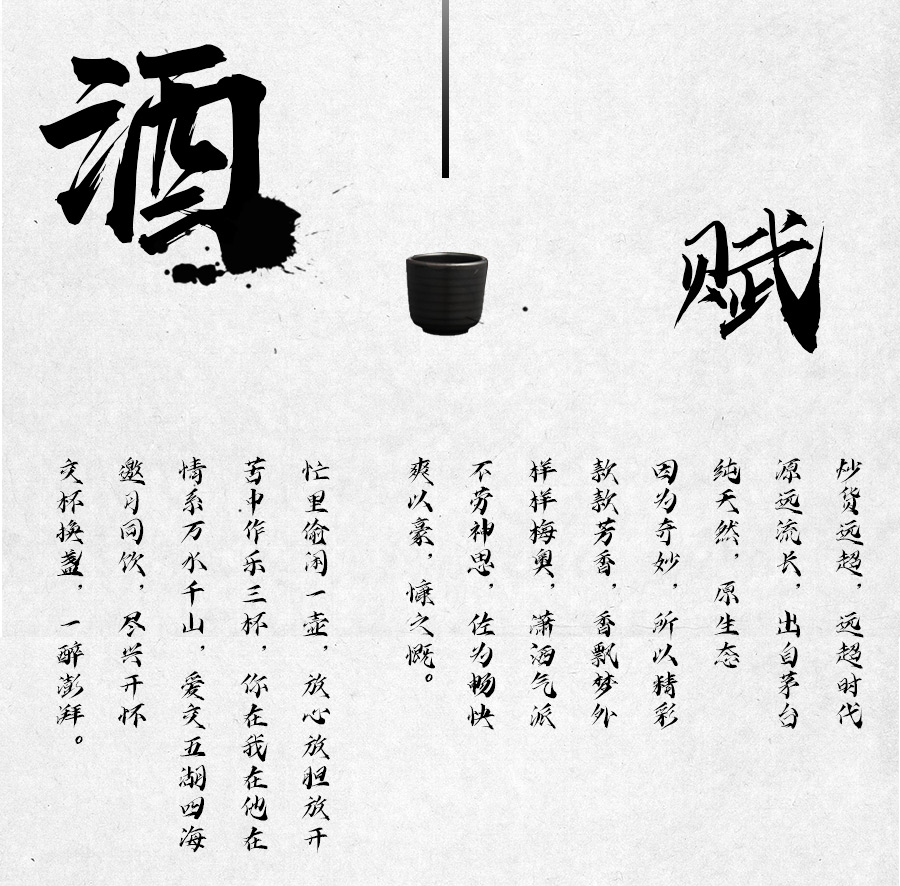 酒
赋
炒货远超，远超时代
源远流长，出自茅台
纯天然，原生态
因为奇妙，所以精彩
款款芳香，香飘梦外
样样梅奥，潇洒气派
不劳神思，佐为畅快
爽以豪，慷之慨。
忙里偷闲一壶，放心放胆放开
苦中作乐三杯，你在我在他在
情系万水千山，爱交五湖四海
邀月同饮，尽兴开怀
交杯换盏，一醉澎湃。